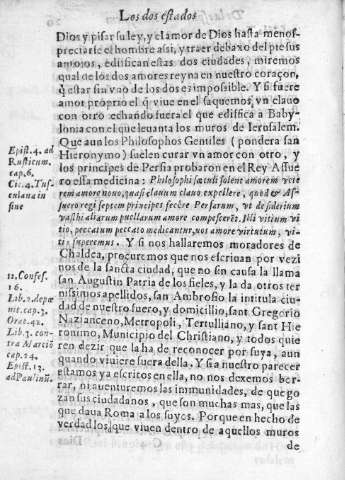 Los dos estados
Dios y pisar su ley, y el amor de Dios hasta menos-
preciarse el hombre assi, y traer debaxo del pie sus
antojos, edifican estas dos ciudades, miremos
qual de los dos amores reyna en nuestro coraçon,
q̃ estar sin vno de los dos es impossible. Y si fuere
amor proprio el q̃ viue en el saquemos, vn clauo
con otro echando fuera el que edifica a Baby-
lonia con el que leuanta los muros de Ierusalem.
Que aun los Philosophos Gentiles (pondera san
Hieronymo) suelen curar vn amor con otro, y
los principes de Persia probaron en el Rey Assue
ro esta medicina: Philosophi sæculi solent amorem vete
rem amore nouo, quasi clauum clauo expellere, quod & As-
suero regi septem principes fecere Persarum, vt desiderium
vasthi aliarum puellarum amore compescerẽt. Illi vitium vi
tio, peccatum peccato medicantur, nos amore virtutum, vi-
tia superemus. Y si nos hallaremos moradores de
Chaldea, procuremos que nos escriuan por vezi
nos de la sancta ciudad, que no sin causa la llama
san Augustin Patria de los fieles, y la da otros ter
nissimos apellidos, san Ambrosio la intitula ciu-
dad de nuestro fuero, y domicillio, sant Gregorio
Nazianceno, Metropoli, Tertulliano, y sant Hie
ronimo, Municipio del Christiano, y todos quie
ren dezir que la ha de reconocer por suya, aun
quando viuiere fuera della. Y si a nuestro parecer
estamos ya escritos en ella, no nos dexemos bor-
rar, ni auenturemos las immunidades, de que go
zan sus ciudadanos, que son muchas mas, que las
que daua Roma a los suyos. Porque en hecho de
verdad los que viuen dentro de aquellos muros
de
Epist. 4. ad
Rusticum.
cap. 6.
Cic. 4. Tus-
culana in
fine
12. Confes.
16.
Lib. 2. de pæ
nit. cap. 3.
Orat. 42.
Lib. 3. con-
tra Martiõ
cap. 24.
Epist. 13.
ad Paulinũ.